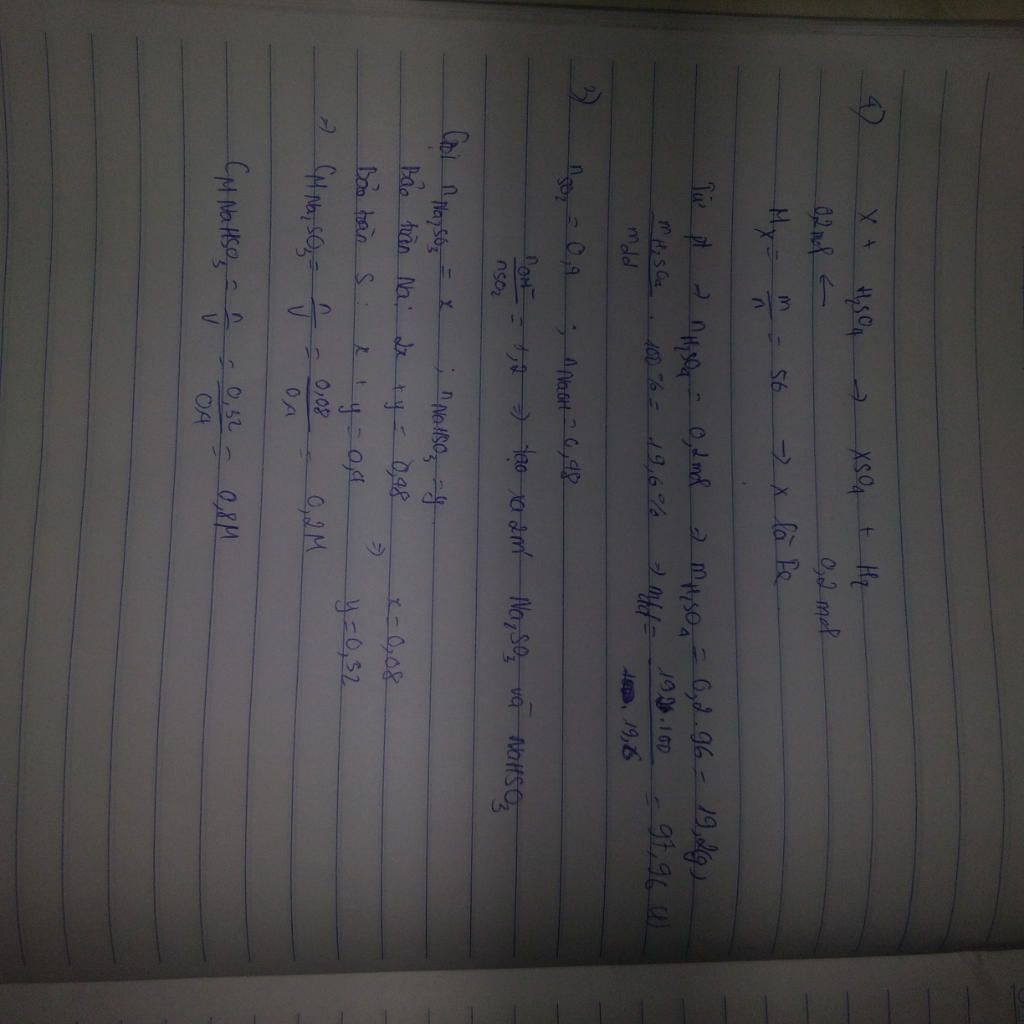 1) X + H₂SO₄ → XSO₄ + H₂
0,2mol ← 0,2 mol
Mx = m/n = 56 → X là Fe
Từ pt → nH₂SO₄ = 0,2mol → mH₂SO₄ = 0,2 . 96 = 19,2(g)
mH₂SO₄/mdd . 100% = 19,6% → mdd = 19,2.100/19,6 = 97,96 (g)
2) nSO₂ = 0,4 ; nNaOH = 0,48
nOH⁻/nSO₂ = 1,2 ⇒ tạo ra 2m' Na₂SO₃ và NaHSO₃
Gọi nNa₂SO₃ = x ; nNaHSO₃ = y
Bảo toàn Na: 2x + y = 0,48 x = 0,08
Bảo toàn S : x + y = 0,4 ⇒ y = 0,32
→ CMNa₂SO₃ = n/V = 0,08/0,4 = 0,2M
CMNaHSO₃ = n/V = 0,32/0,4 = 0,8M